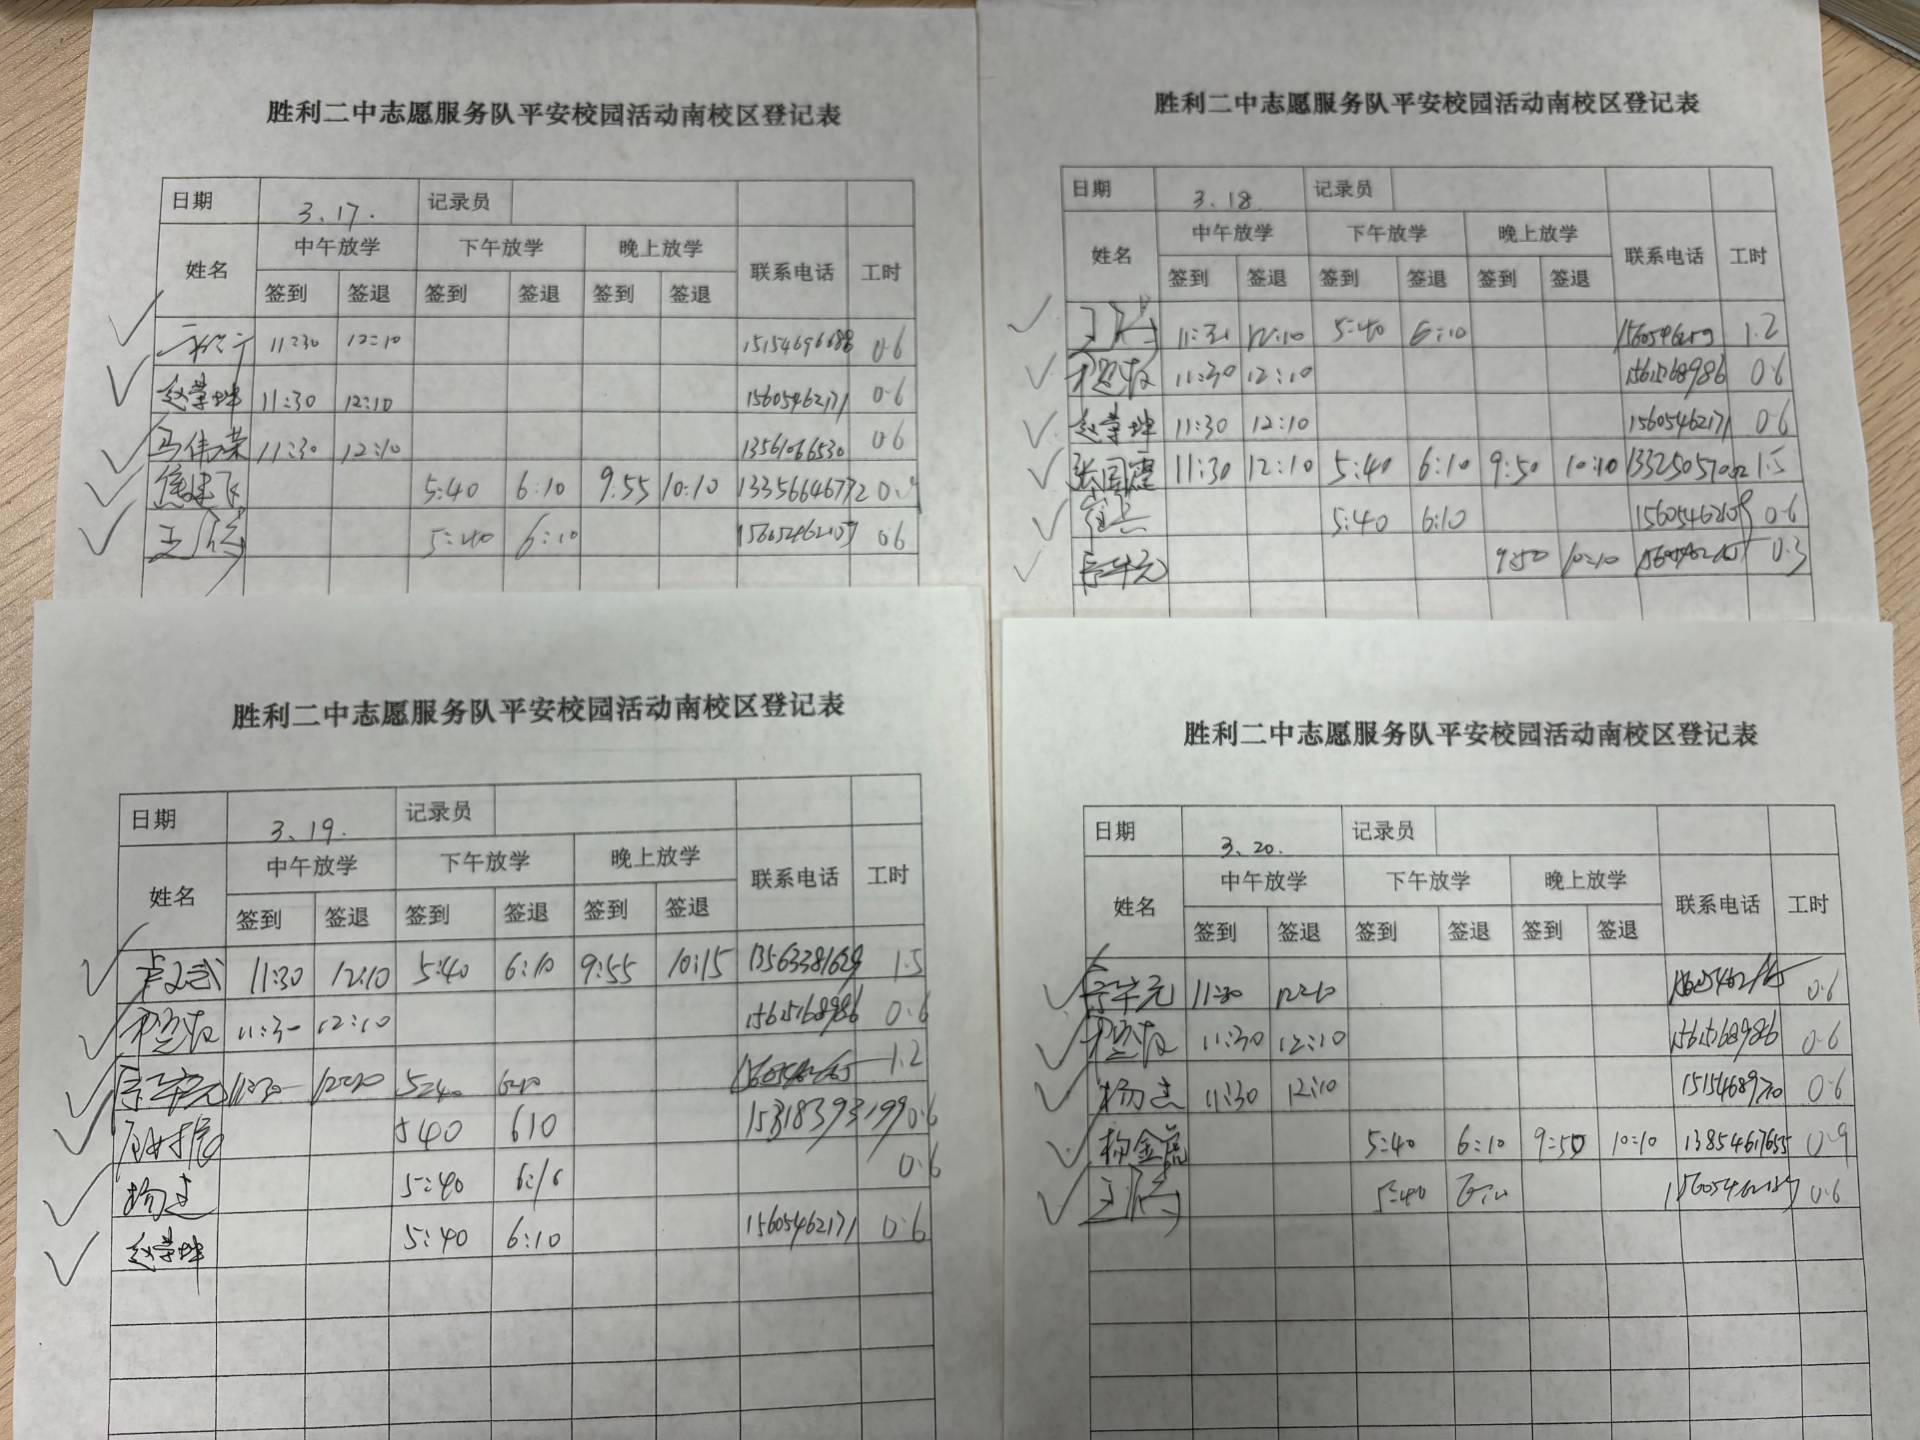 胜利二中志愿服务队平安校园活动南校区登记表
日期 3、17. 记录员
姓名 中午放学 下午放学 晚上放学 联系电话 工时
签到 签退 签到 签退 签到 签退
11:30 12:10 0.6
赵荣坤 11:30 12:10 15605462171 0.6
马伟荣 11:30 12:10 13561066530 0.6
5:40 6:10 9:55 10:10 13356646772 0.9
5:40 6:10 0.6
胜利二中志愿服务队平安校园活动南校区登记表
日期 3、18. 记录员
姓名 中午放学 下午放学 晚上放学 联系电话 工时
签到 签退 签到 签退 签到 签退
11:30 12:10 5:40 6:10 1.2
11:30 12:10 0.6
赵荣坤 11:30 12:10 15605462171 0.6
11:30 12:10 5:40 6:10 9:50 10:10 1.5
5:40 6:10 0.6
9:50 10:10 0.3
胜利二中志愿服务队平安校园活动南校区登记表
日期 3、19. 记录员
姓名 中午放学 下午放学 晚上放学 联系电话 工时
签到 签退 签到 签退 签到 签退
11:30 12:10 5:40 6:10 9:55 10:15 13563381629 1.5
11:30 12:10 15615168986 0.6
11:30 12:10 5:40 6:10 1.2
540 610 15318393199 0.6
5:40 6:10 0.6
赵荣坤 5:40 6:10 15605462171 0.6
胜利二中志愿服务队平安校园活动南校区登记表
日期 3、20. 记录员
姓名 中午放学 下午放学 晚上放学 联系电话 工时
签到 签退 签到 签退 签到 签退
11:30 12:10 0.6
11:30 12:10 15615168986 0.6
11:30 12:10 0.6
杨金虎 5:40 6:10 9:50 10:10 13854617655 0.9
5:40 0.6